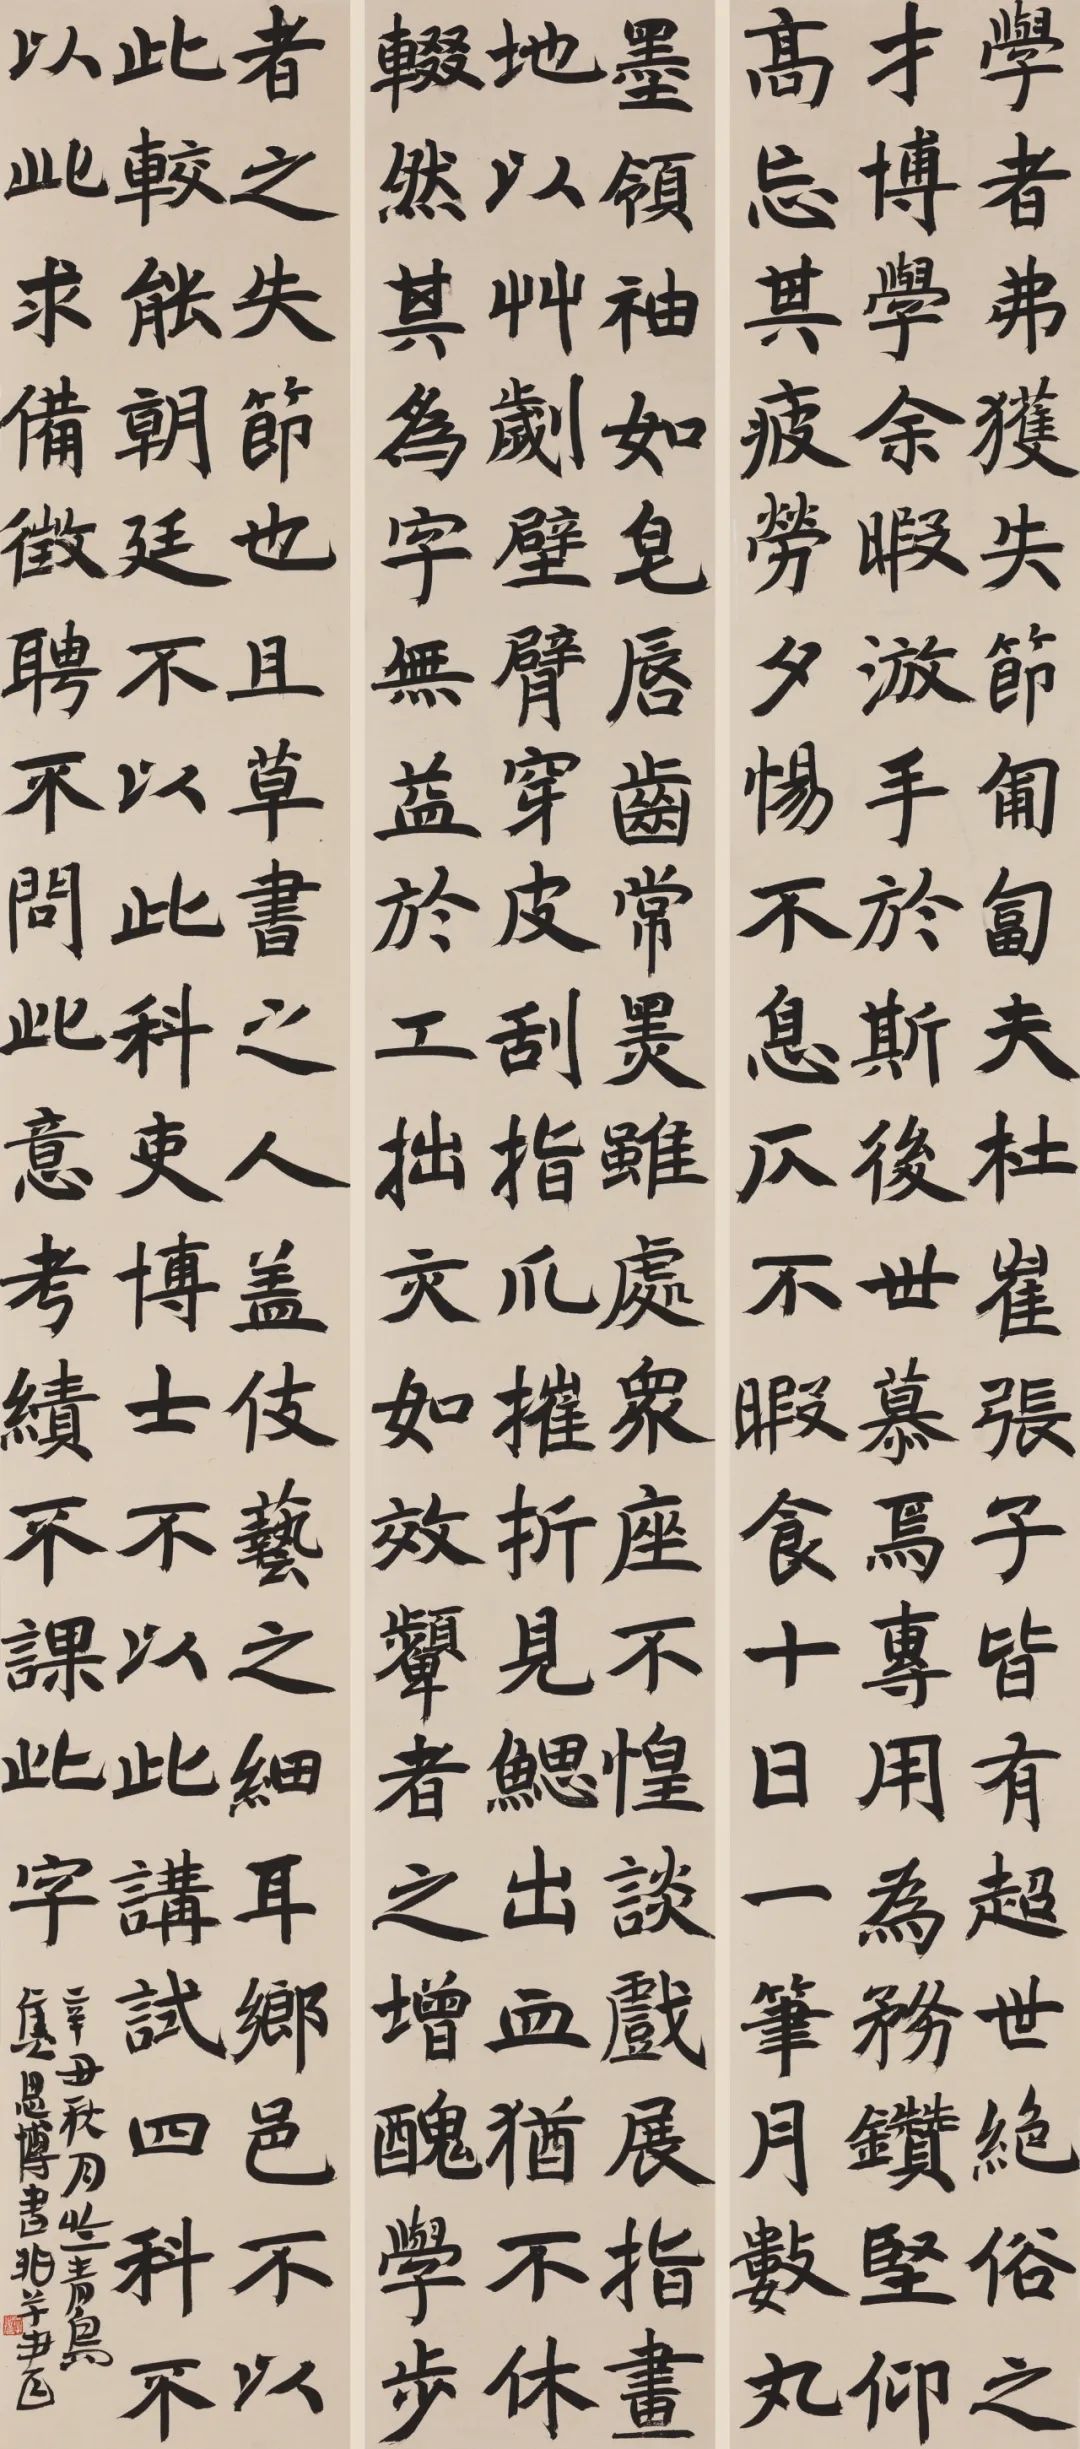 學者弗獲失節匍匐夫杜崔張子皆有超世絕俗之
才博學余暇游手於斯後世慕焉專用為務鑽堅仰
高忘其疲勞夕惕不息仄不暇食十日一筆月數丸
墨領袖如皂唇齒常黑雖處眾座不惶談戲展指畫
地以艸劌壁臂穿皮刮指爪摧折見鰓出血猶不休
輟然其為字無益於工拙亦如效顰者之增醜學步
者之失節也且草書之人盖伎藝之細耳鄉邑不以
此較能朝廷不以此科吏博士不以此講試四科不
以此求備徵聘不問此意考績不課此字
辛丑秋月於青島
思博書非草書